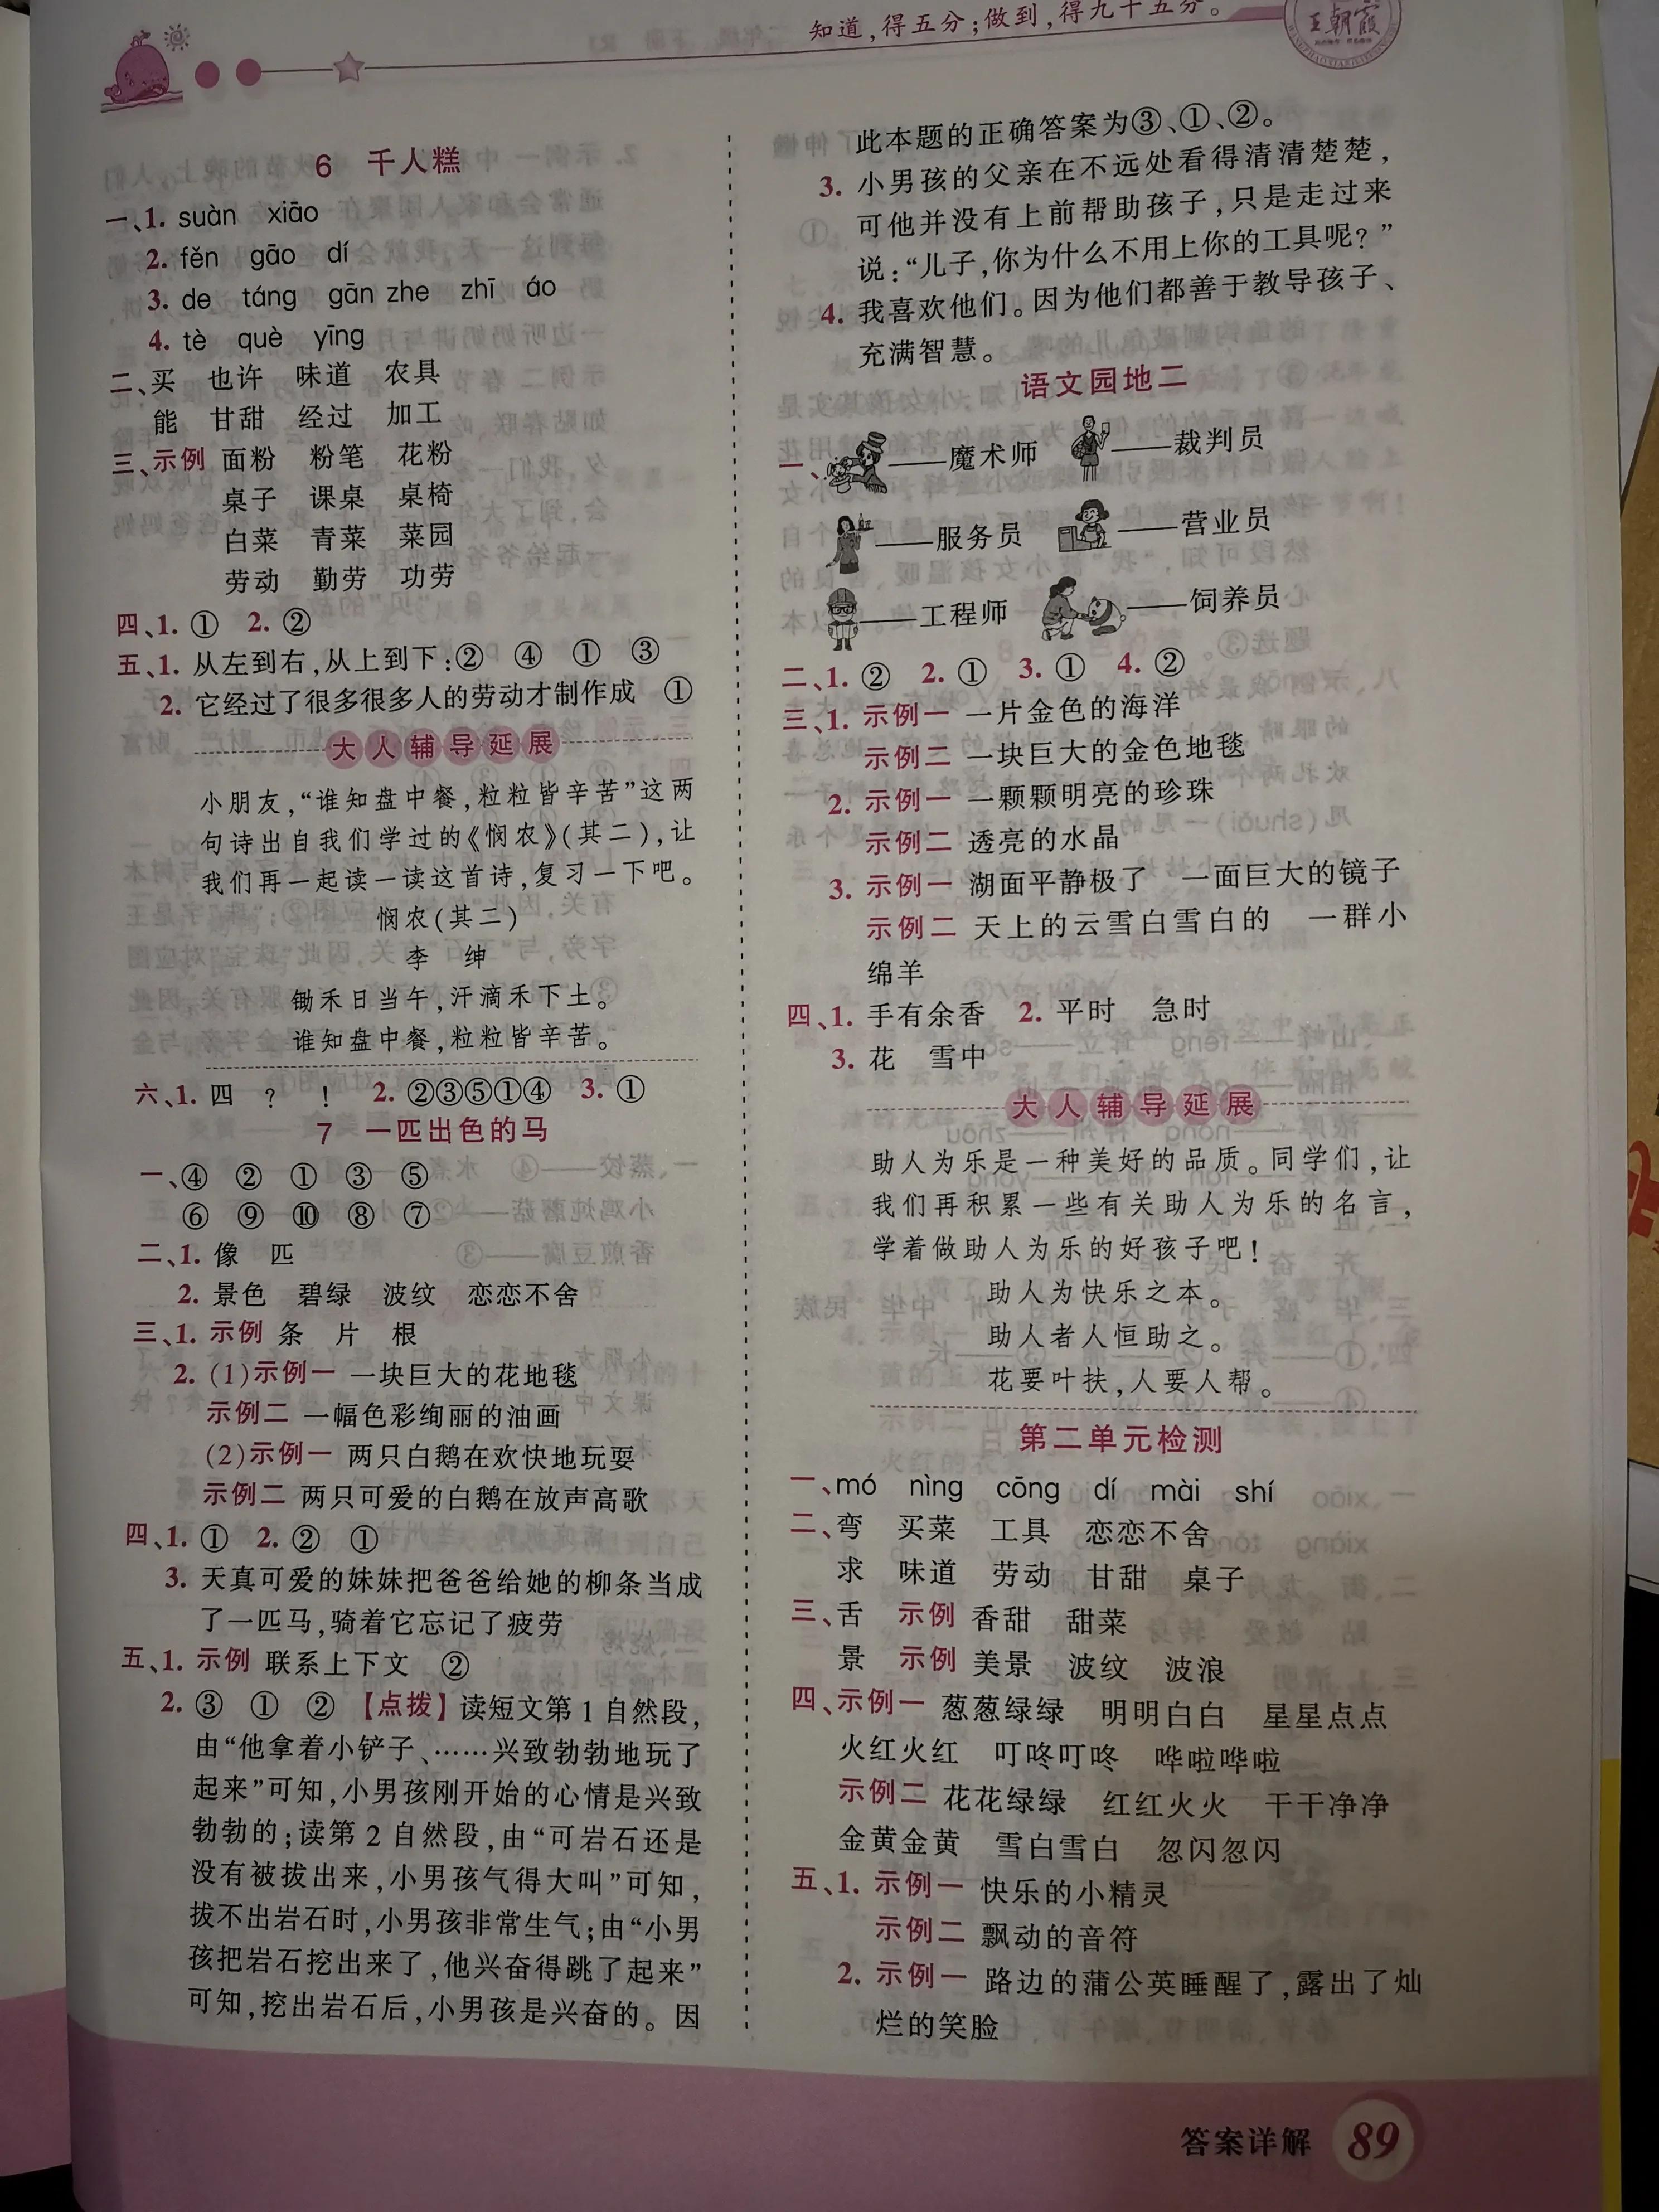 知道,得五分;做到,得九十五分。
王朝霞
6 千人糕
一、1. suàn xiāo
2. fěn gāo dí
3. de táng gān zhe zhī áo
4. tè què yīng
二、买 也许 味道 农具
能 甘甜 经过 加工
三、示例 面粉 粉笔 花粉
桌子 课桌 桌椅
白菜 青菜 菜园
劳动 勤劳 功劳
四、1. ① 2. ②
五、1. 从左到右,从上到下:② ④ ① ③
2. 它经过了很多很多人的劳动才制作成 ①
大人辅导延展
小朋友,“谁知盘中餐,粒粒皆辛苦”这两
句诗出自我们学过的《悯农》(其二),让
我们再一起读一读这首诗,复习一下吧。
悯农(其二)
李 绅
锄禾日当午,汗滴禾下土。
谁知盘中餐,粒粒皆辛苦。
六、1. 四 ? ! 2. ②③⑤①④ 3. ①
7 一匹出色的马
一、④ ② ① ③ ⑤
⑥ ⑨ ⑩ ⑧ ⑦
二、1. 像 匹
2. 景色 碧绿 波纹 恋恋不舍
三、1. 示例 条 片 根
2. (1)示例一 一块巨大的花地毯
示例二 一幅色彩绚丽的油画
(2)示例一 两只白鹅在欢快地玩耍
示例二 两只可爱的白鹅在放声高歌
四、1. ① 2. ② ①
3. 天真可爱的妹妹把爸爸给她的柳条当成
了一匹马,骑着它忘记了疲劳
五、1. 示例 联系上下文 ②
2. ③ ① ② 【点拨】读短文第1自然段,
由“他拿着小铲子、……兴致勃勃地玩了
起来”可知,小男孩刚开始的心情是兴致
勃勃的;读第2自然段,由“可岩石还是
没有被拔出来,小男孩气得大叫”可知,
拔不出岩石时,小男孩非常生气;由“小男
孩把岩石挖出来了,他兴奋得跳了起来”
可知,挖出岩石后,小男孩是兴奋的。因
此本题的正确答案为③、①、②。
3. 小男孩的父亲在不远处看得清清楚楚,
可他并没有上前帮助孩子,只是走过来
说:“儿子,你为什么不用上你的工具呢?”
4. 我喜欢他们。因为他们都善于教导孩子、
充满智慧。
语文园地二
一、——魔术师 ——裁判员
——服务员 ——营业员
——工程师 ——饲养员
二、1. ② 2. ① 3. ① 4. ②
三、1. 示例一 一片金色的海洋
示例二 一块巨大的金色地毯
2. 示例一 一颗颗明亮的珍珠
示例二 透亮的水晶
3. 示例一 湖面平静极了 一面巨大的镜子
示例二 天上的云雪白雪白的 一群小
绵羊
四、1. 手有余香 2. 平时 急时
3. 花 雪中
大人辅导延展
助人为乐是一种美好的品质。同学们,让
我们再积累一些有关助人为乐的名言,
学着做助人为乐的好孩子吧!
助人为快乐之本。
助人者人恒助之。
花要叶扶,人要人帮。
第二单元检测
一、mó nìng cōng dí mài shí
二、弯 买菜 工具 恋恋不舍
求 味道 劳动 甘甜 桌子
三、舌 示例 香甜 甜菜
景 示例 美景 波纹 波浪
四、示例一 葱葱绿绿 明明白白 星星点点
火红火红 叮咚叮咚 哗啦哗啦
示例二 花花绿绿 红红火火 干干净净
金黄金黄 雪白雪白 忽闪忽闪
五、1. 示例一 快乐的小精灵
示例二 飘动的音符
2. 示例一 路边的蒲公英睡醒了,露出了灿
烂的笑脸
答案详解 89